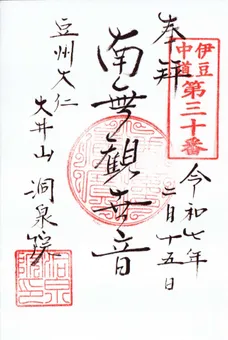 伊豆
中道
第三十番
奉拝
令和七年
二月十五日
南無觀世音
豆州大仁
大井山 洞泉院